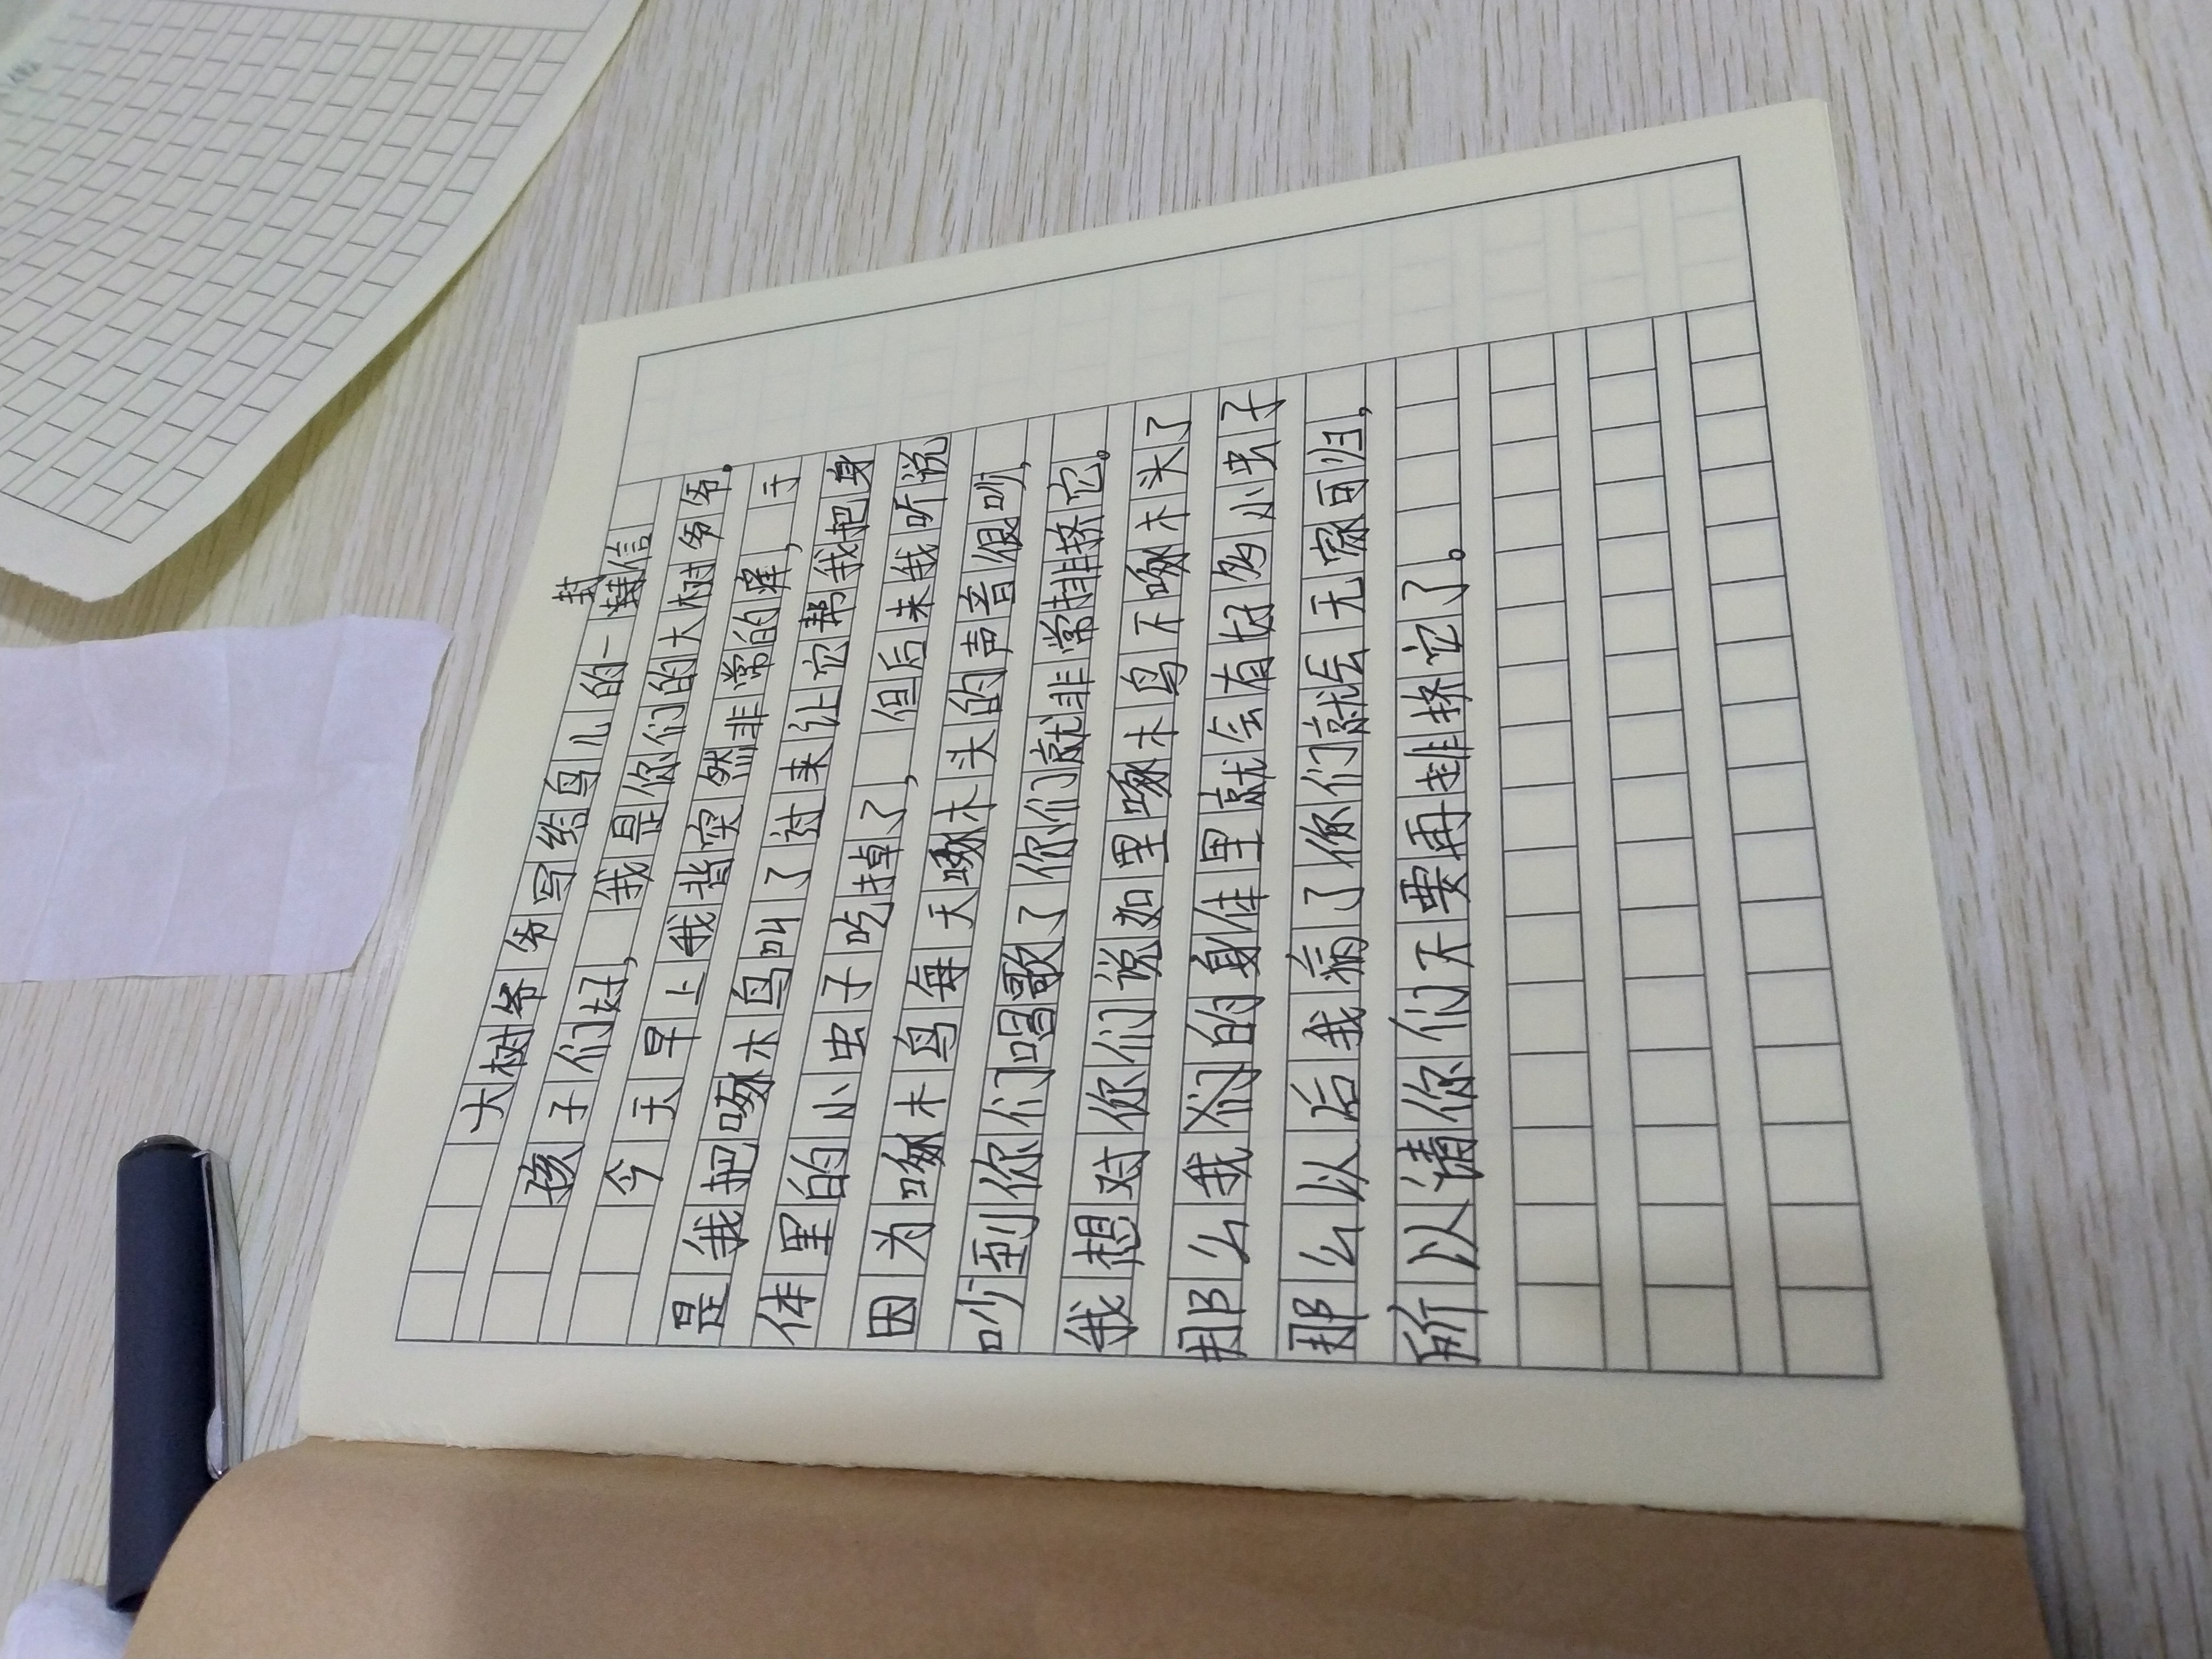 大树爷爷写给鸟儿的一封信
孩子们好，我是你们的大树爷爷。
今天早上我背突然非常的痒，于
是我把啄木鸟叫了过来让它帮我把身
体里的小虫子吃掉了，但后来我听说
因为啄木鸟每天啄木头的声音很吵，
吵到你们唱歌了你们就非常排挤它。
我想对你们说如里啄木鸟不啄木头了
那么我们的身体里就会有好多小虫子
那么以后我病了你们就会无家可归，
所以请你们不要再排挤它了。